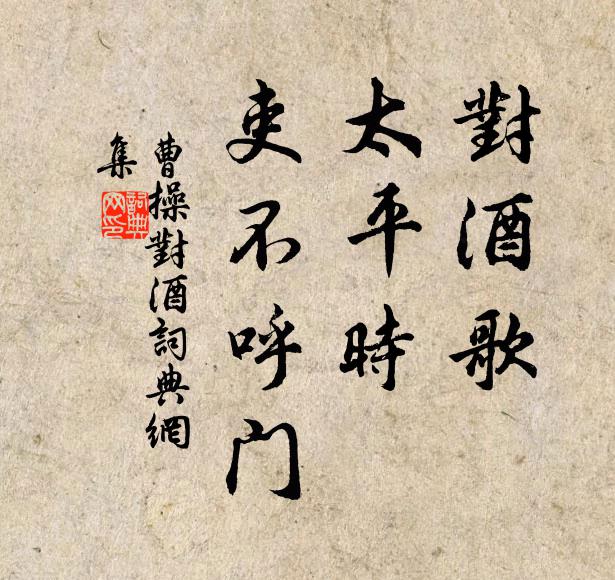 對酒歌
太平時
吏不呼門
曹操對酒詞典網
集
詞典
网印